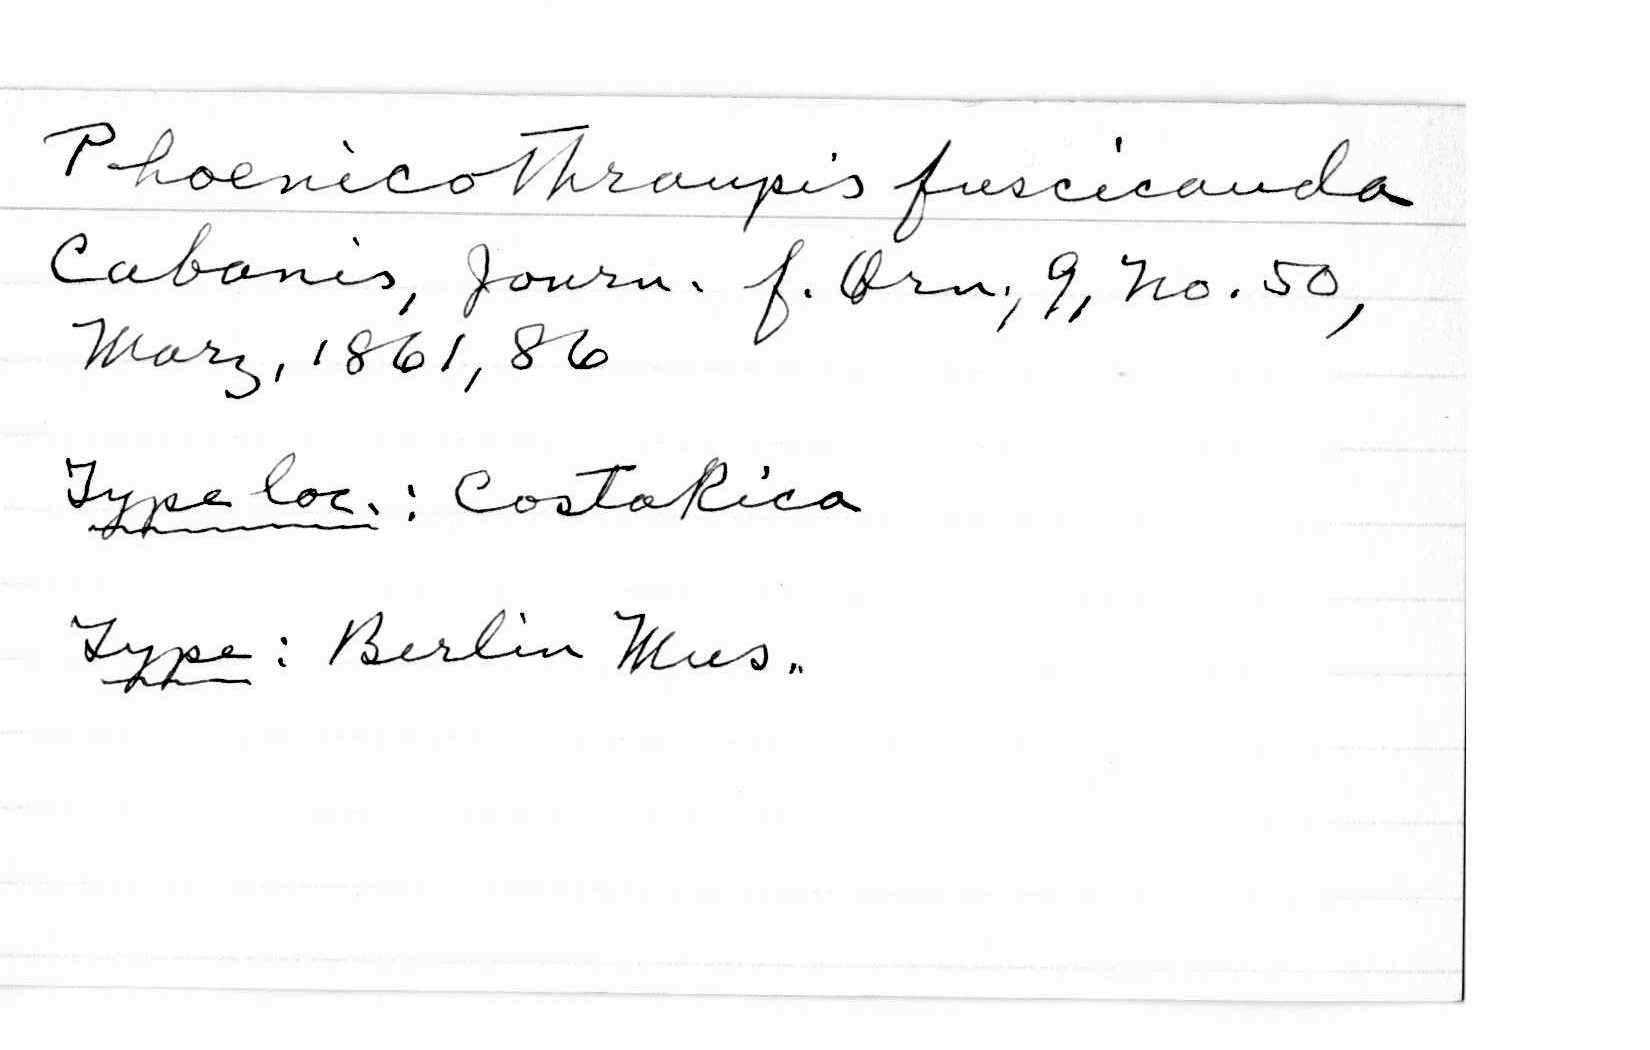 Phoenicothraupis fuscicauda
Cabanis, Journ. f. Orn., 9, No. 50,
Marz, 1861, 86
Type loc.: Costa Rica
Type: Berlin Mus.